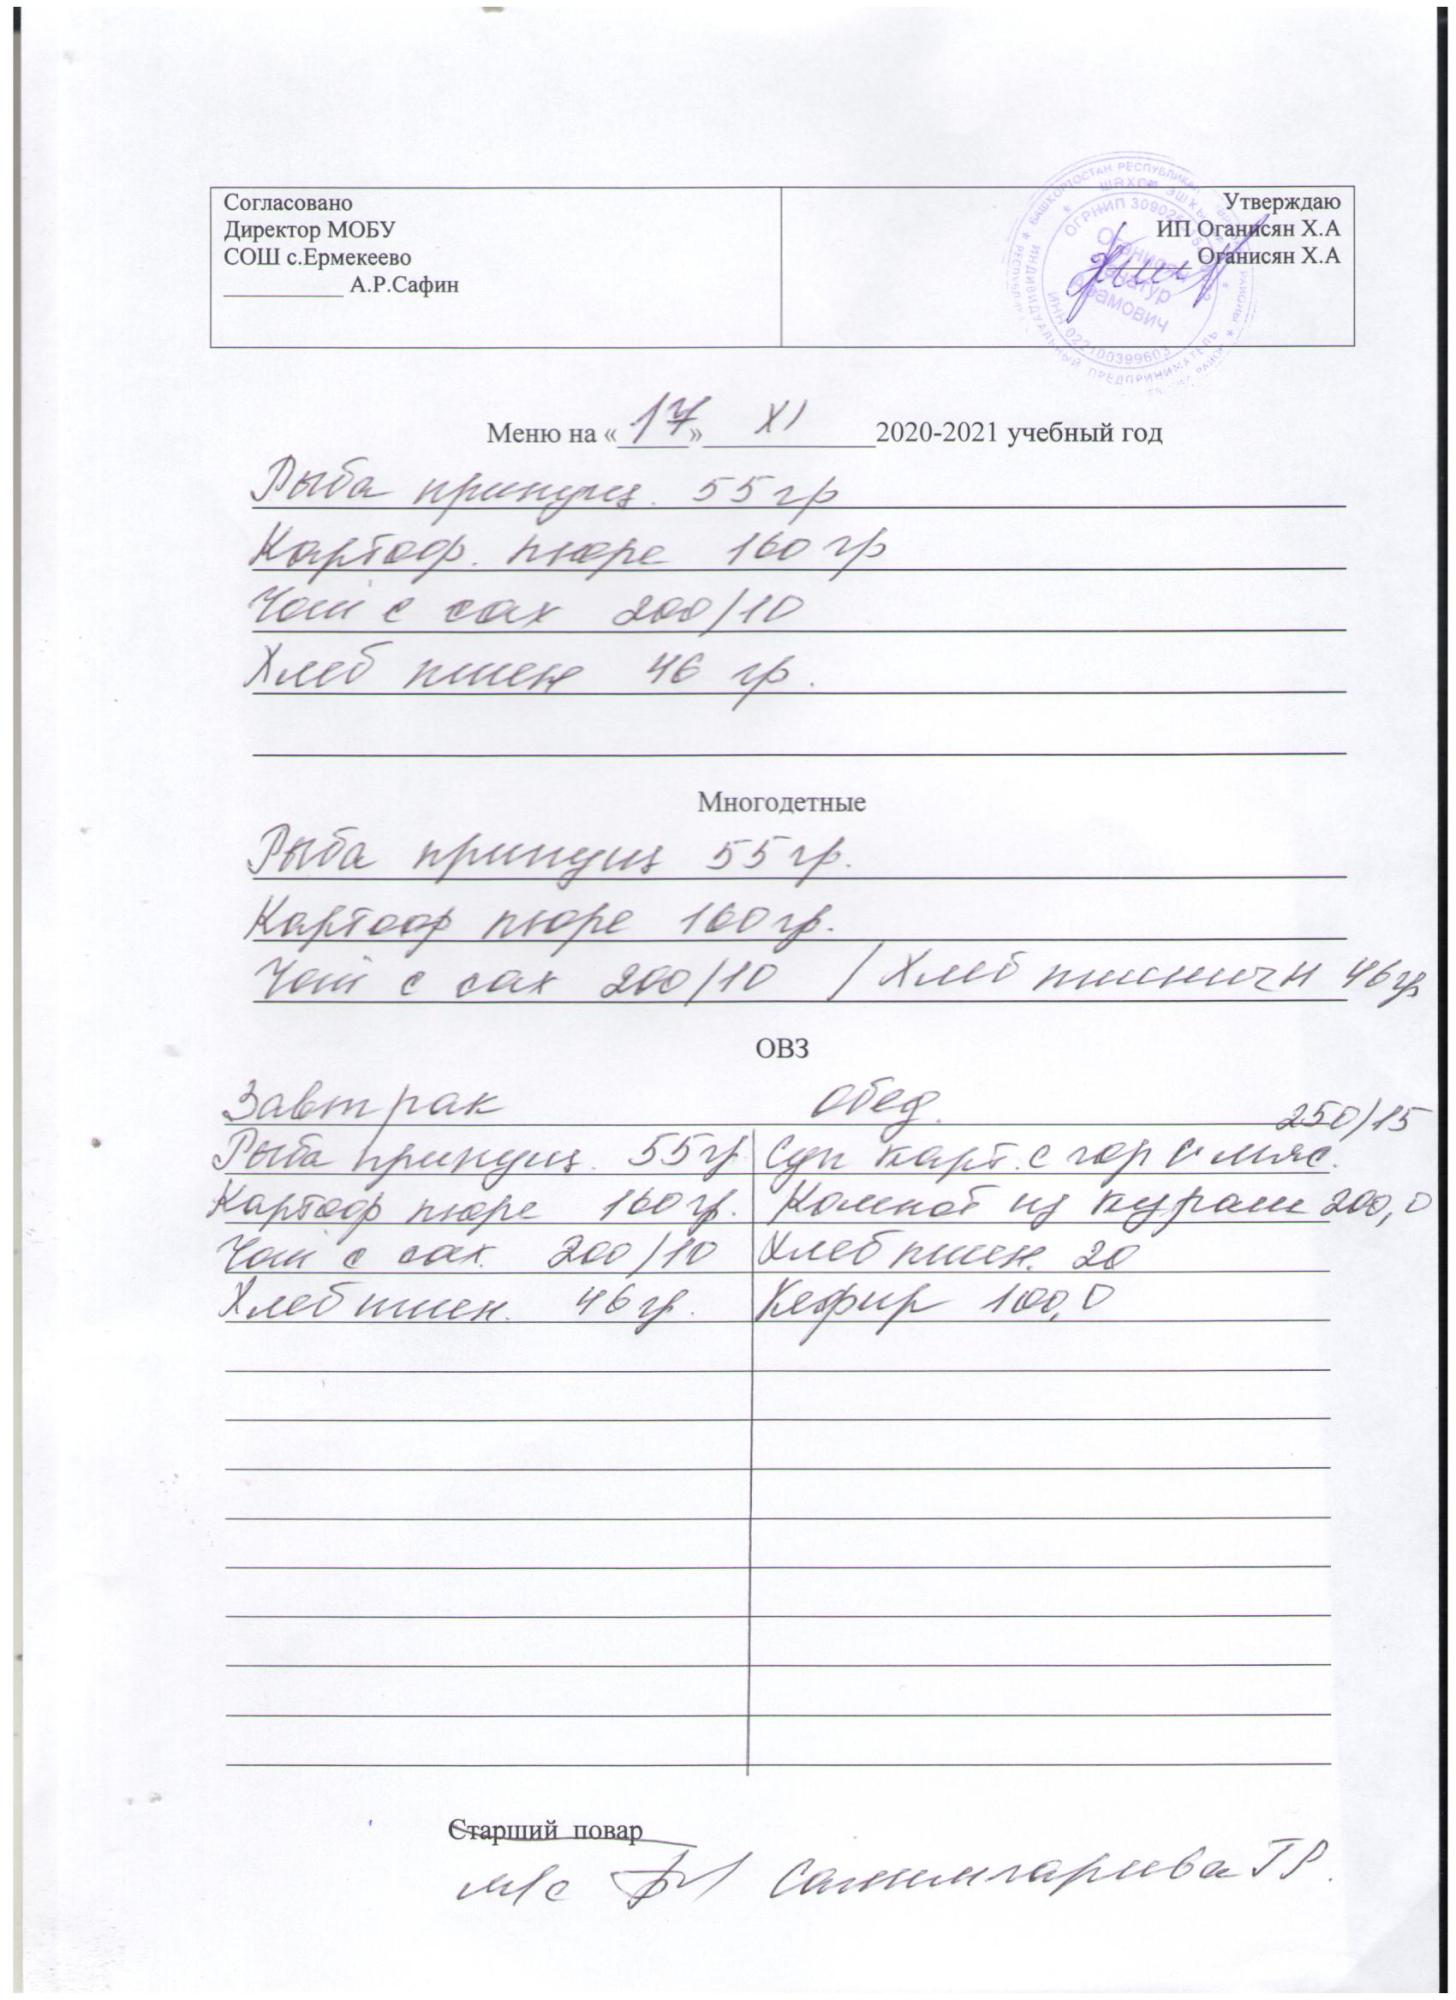 Согласовано
Директор МОБУ
СОШ с.Ермекеево
__________ А.Р.Сафин
Утверждаю
ИП Оганисян Х.А
Оганисян Х.А
БАШКОРТОСТАН РЕСПУБЛИКАҺЫ
ИНДИВИДУАЛЬНЫЙ ПРЕДПРИНИМАТЕЛЬ
ИНН 022100399603
Меню на «17» XI 2020-2021 учебный год
Рыба припущ. 55 гр
Картоф. пюре 160 гр
Чай с сах 200/10
Хлеб пшен 46 гр.
Многодетные
Рыба припущ 55 гр.
Картоф пюре 160 гр.
Чай с сах 200/10 / Хлеб пшеничн 46 гр
ОВЗ
Завтрак Обед. 250/15
Рыба припущ. 55 гр Суп карт. с гор с мяс.
Картоф пюре 160 гр. Компот из кураги 200,0
Чай с сах. 200/10 Хлеб пшен. 20
Хлеб пшен. 46 гр. Кефир 100,0
Старший повар
м/с Салимгариева Г Р.